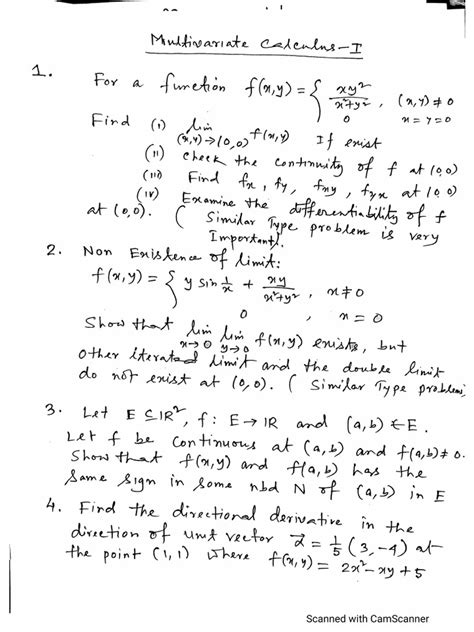 Multivariate Calculus-I
1. For a function f(x,y) = { xy²/x²+y² , (x,y) ≠ 0
0 x=y=0
Find (i) lim (x,y)→(0,0) f(x,y) If exist
(ii) check the continuity of f at (0,0)
(iii) Find fx, fy, fxy, fyx at (0,0)
(iv) Examine the differentiability of f
at (0,0). ( Similar Type problem is very
Important).
2. Non Existence of limit:
f(x,y) = { y sin 1/x + xy/x²+y² , x≠0
0 , x = 0
Show that lim x→0 lim y→0 f(x,y) exists, but
other iterated limit and the double limit
do not exist at (0,0). ( Similar Type problem)
3. Let E ⊆ IR², f: E → IR and (a,b) ∈ E.
Let f be continuous at (a,b) and f(a,b) ≠ 0.
Show that f(x,y) and f(a,b) has the
same sign in some nbd N of (a,b) in E
4. Find the directional derivative in the
direction of unit vector α⃗ = 1/5 (3,-4) at
the point (1,1) where f(x,y) = 2x²-xy+5
Scanned with CamScanner